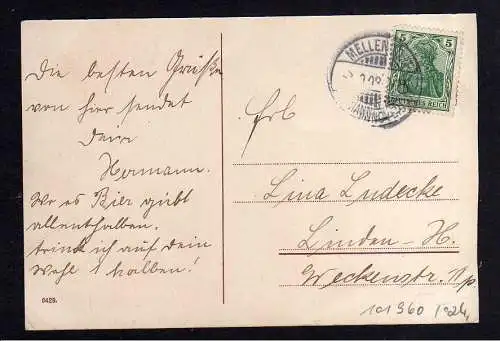 Die besten Grüße
von hier sendet
Dein
Hermann.
Wo es Bier gibt
allenthalben.
trink ich auf Dein
Wohl 1 halben!
0429.
MELLEN
HANNOVER
5 5
DEUTSCHES REICH
Frl.
Lina Ludecke
Linden-H.
Weckenstr. 11 p.
101960